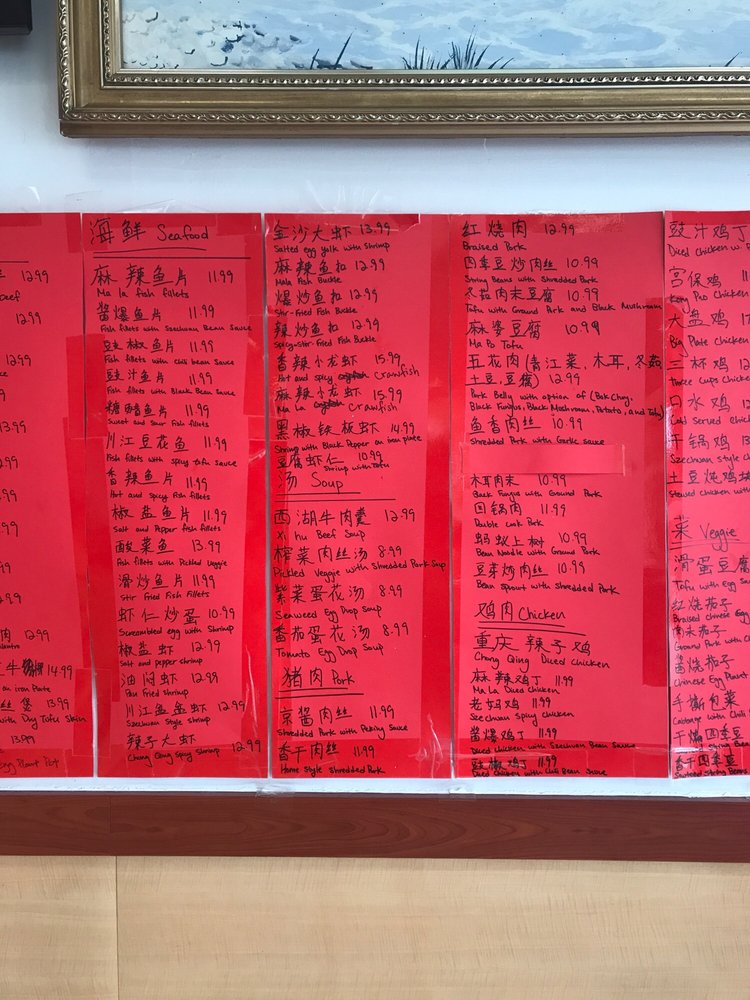 12.99
Beef
12.99
12.99
13.99
牛 14.99
on iron Plate
煲 13.99
with Dry Tofu Skin
13.99
Egg Plant Pot
海鲜 Seafood
麻辣鱼片 11.99
Ma la fish fillets
酱爆鱼片 11.99
Fish fillets with Szechuan Bean Sauce
豉椒鱼片 11.99
Fish fillets with chili bean Sauce
豉汁鱼片 11.99
Fish fillets with Black Bean Sauce
糖醋鱼片 11.99
Sweet and Sour Fish fillets
川江豆花鱼 11.99
Fish fillets with spicy tofu Sauce
香辣鱼片 11.99
Hot and Spicy Fish fillets
椒盐鱼片 11.99
Salt and Pepper fish fillets
酸菜鱼 13.99
Fish fillets with Pickled Veggie
滑炒鱼片 11.99
Stir Fried Fish Fillets
虾仁炒蛋 10.99
Screambled egg with Shrimp
椒盐虾 12.99
Salt and pepper shrimp
油闷虾 12.99
Pan Fried shrimp
川江鱼鱼虾 12.99
Szechuan Style shrimp
辣子大虾 12.99
Chong Qing Spicy shrimp
金沙大虾 13.99
Salted egg yolk with Shrimp
麻辣鱼扣 12.99
Mala Fish Buckle
爆炒鱼扣 12.99
Stir-Fried Fish Buckle
辣炒鱼扣 12.99
Spicy-Stir-Fried Fish Buckle
香辣小龙虾 15.99
Hot and Spicy Crawfish
麻辣小龙虾 15.99
Ma La Crawfish
黑椒铁板虾 14.99
Shrimp with Black Pepper on iron plate
豆腐虾仁 10.99
Shrimp with Tofu
汤 Soup
西湖牛肉羹 12.99
Xi hu Beef Soup
榨菜肉丝汤 8.99
Pickled Veggie with Shredded Pork Soup
紫菜蛋花汤 8.99
Seaweed Egg Drop Soup
番茄蛋花汤 8.99
Tomato Egg Drop Soup
猪肉 Pork
京酱肉丝 11.99
Shredded Pork with Peking Sauce
香干肉丝 11.99
Home Style Shredded Pork
红烧肉 12.99
Braised Pork
四季豆炒肉丝 10.99
String Beans with Shredded Pork
冬菇肉末豆腐 10.99
Tofu with Ground Pork and Black Mushroom
麻婆豆腐 10.99
Ma Po Tofu
五花肉(青江菜,木耳,冬菇
土豆,豆腐) 12.99
Pork Belly with option of (Bok Choy,
Black Fungus, Black Mushroom, Potato, and Tofu)
鱼香肉丝 10.99
Shredded Pork with Garlic sauce
木耳肉末 10.99
Black Fungus with Ground Pork
回锅肉 11.99
Double Cook Pork
蚂蚁上树 10.99
Bean Noodle with Ground Pork
豆芽炒肉丝 10.99
Bean Sprout with Shredded Pork
鸡肉 Chicken
重庆辣子鸡
Chong Qing Diced Chicken
麻辣鸡丁 11.99
Ma La Diced Chicken
老妈鸡 11.99
Szechuan Spicy Chicken
酱爆鸡丁 11.99
Diced Chicken with Szechuan Bean Sauce
豉椒鸡丁 11.99
Diced Chicken with Chili Bean Sauce
豉汁鸡丁
Diced Chicken w.
宫保鸡 11
Kong Pao Chicken
大盘鸡
Big Plate Chicken
三杯鸡 12
Three Cups Chicken
口水鸡 12
Cold Served Chicken
干锅鸡 13
Szechuan Style
土豆炖鸡块
Stewed Chicken with
菜 Veggie
滑蛋豆腐
Tofu with Egg
红烧茄子
Braised Chinese Egg
肉末茄子
Ground Pork with
酱烧茄子
Chinese Egg Plant
手撕包菜
Cabbage with Chili
干煸四季豆
String Bean
香干四季豆
String Beans